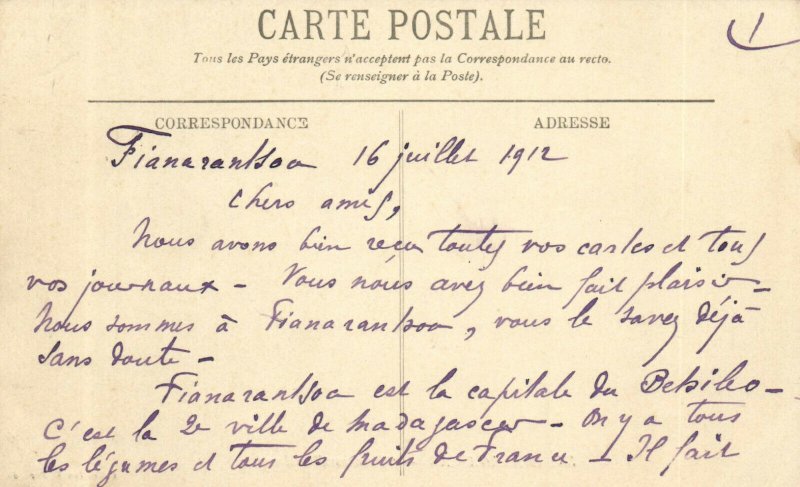 CARTE POSTALE
1
Tous les Pays étrangers n'acceptent pas la Correspondance au recto.
(Se renseigner à la Poste).
CORRESPONDANCE
ADRESSE
Fianarantsoa 16 juillet 1912
Chers amis,
Nous avons bien reçu toutes vos cartes et tous
vos journaux - Vous nous avez bien fait plaisir -
Nous sommes à Fianarantsoa, vous le savez déjà
sans doute -
Fianarantsoa est la capitale du Betsileo -
C'est la 2e ville de Madagascar - On y a tous
les légumes et tous les fruits de France - Il fait